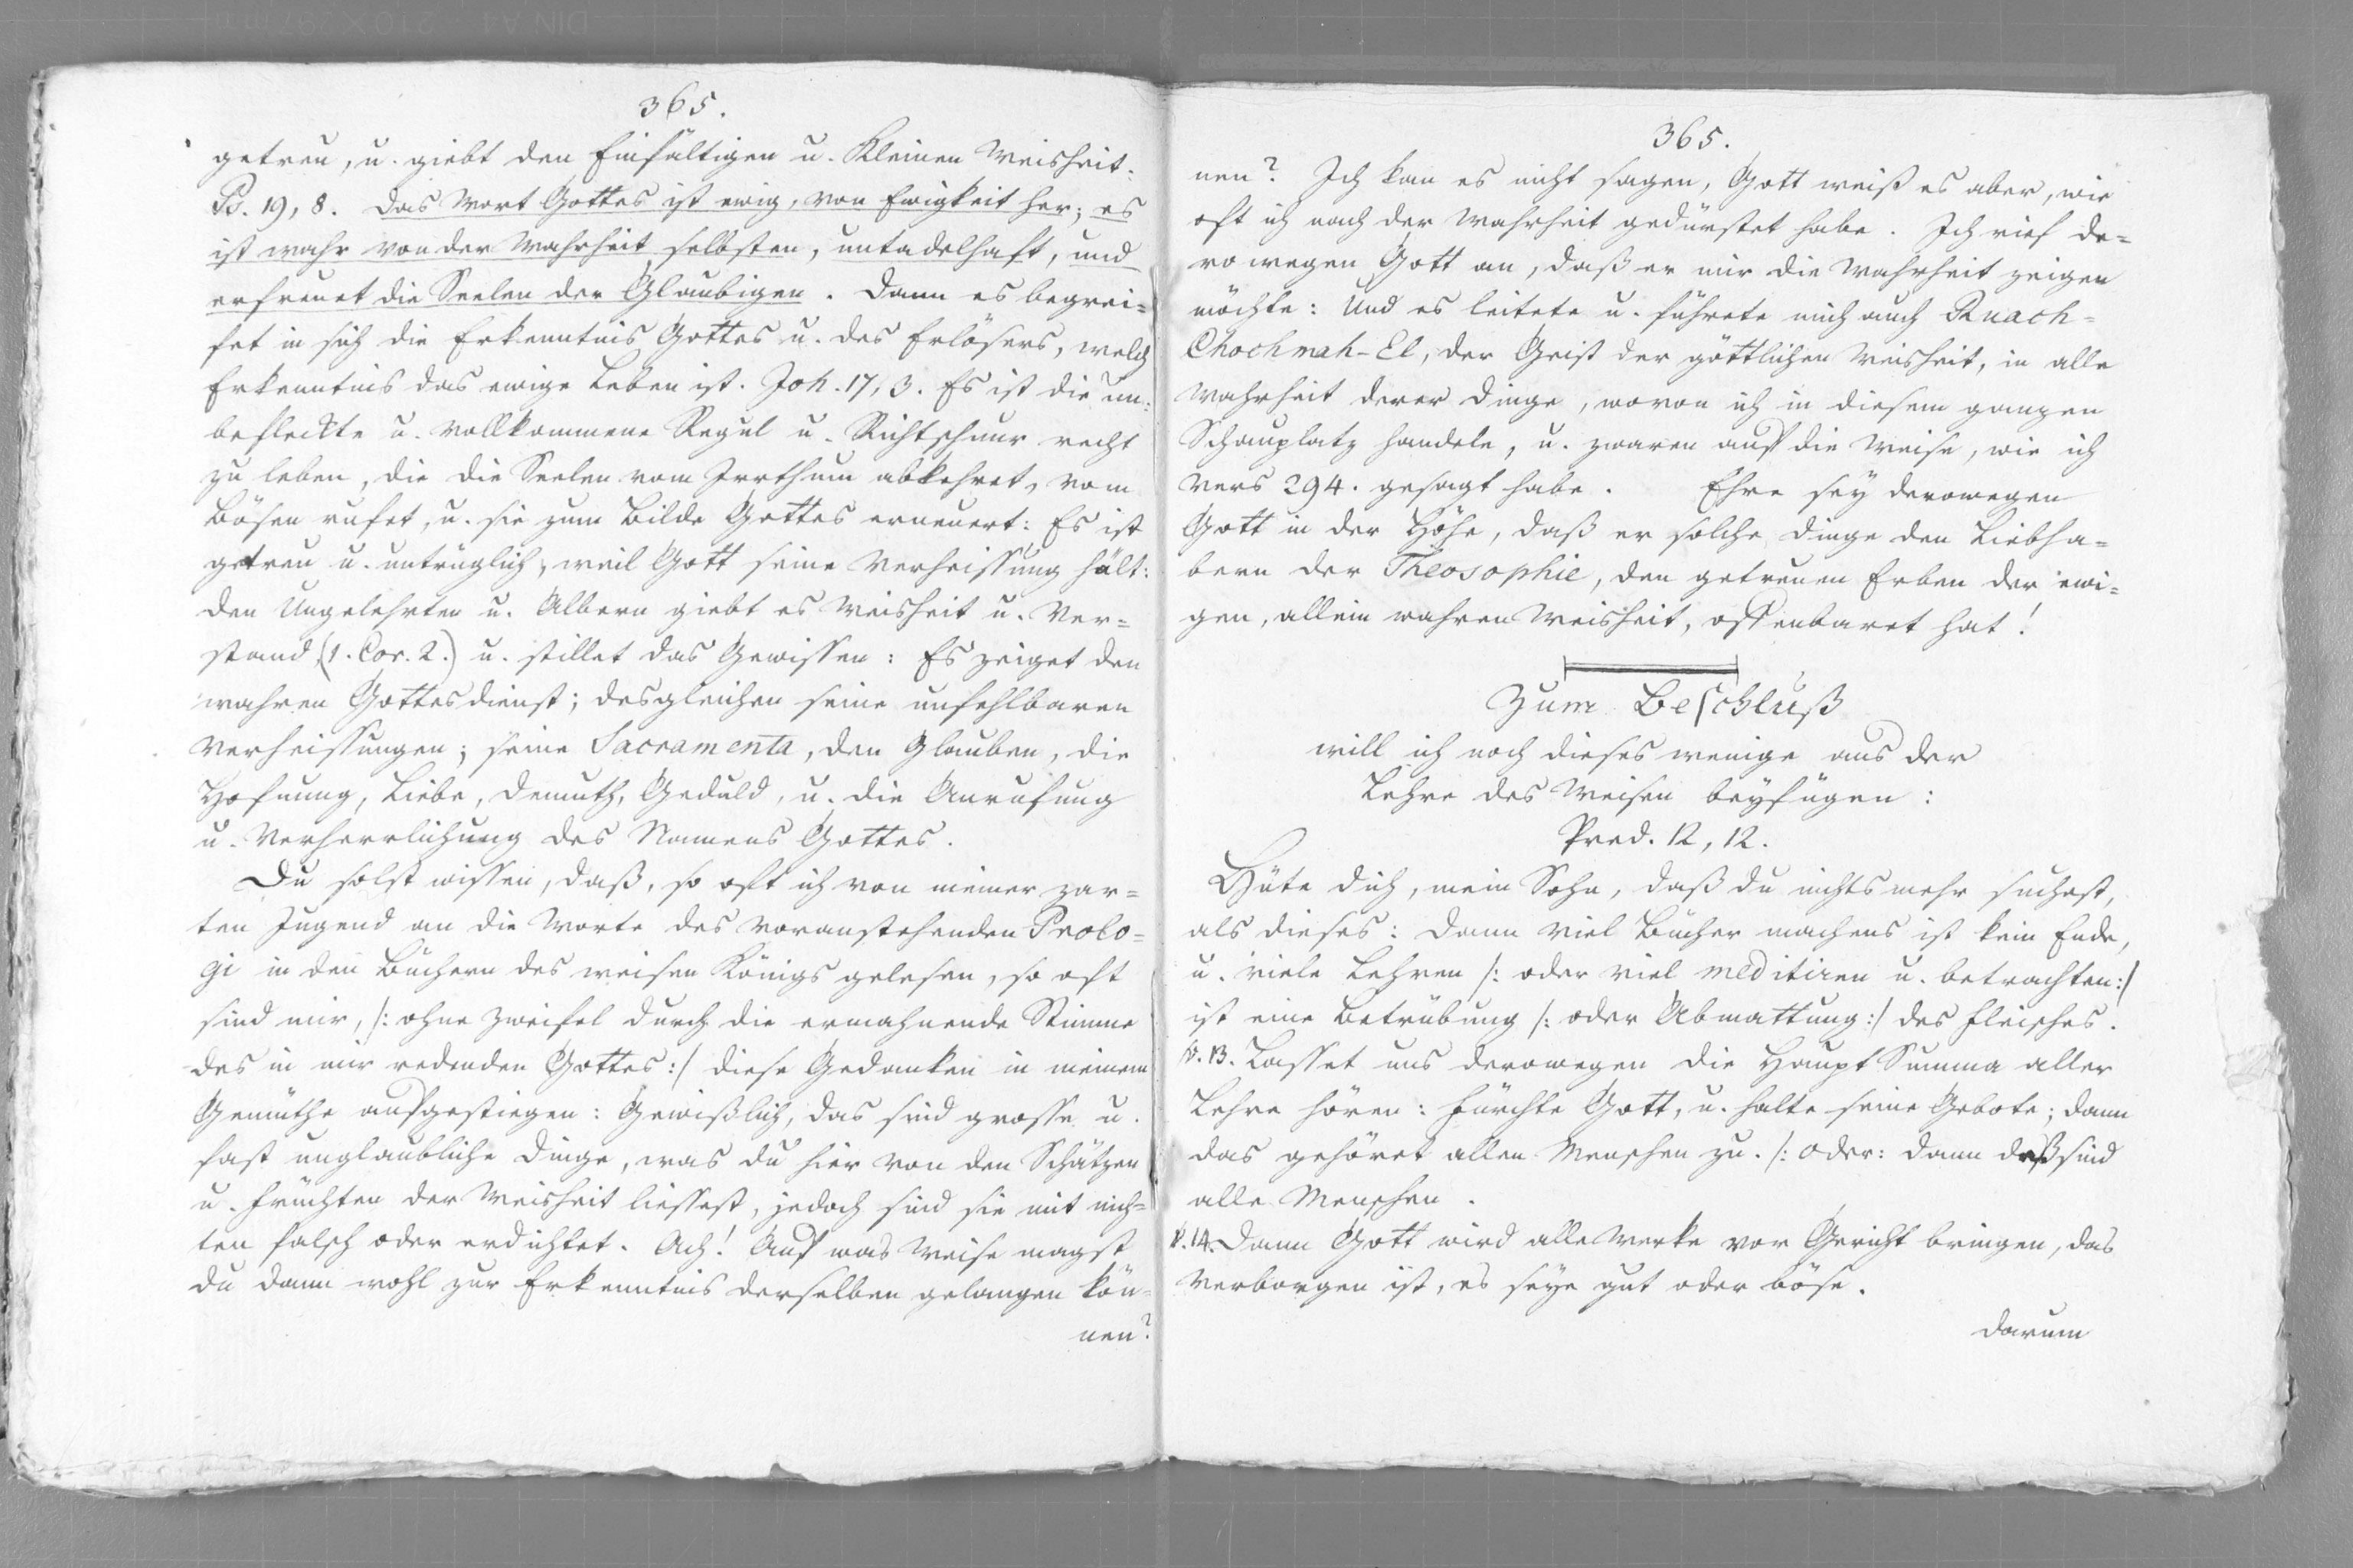 365.
getreu, u. giebt den Einfältigen u. Kleinen Weisheit.
Ps. 19, 8. Das Wort Gottes ist ewig, von Ewigkeit her; es
ist wahr von der Wahrheit selbsten, untadelhaft, und
erfreuet die Seelen der Glaubigen. Dann es begrei=
fet in sich die Erkenntnis Gottes u. des Erlösers, welch
Erkenntnis das ewige Leben ist. Joh. 17, 3. Es ist die un=
befleckte u. vollkommene Regul u. Richtschnur recht
zu leben, die die Seelen vom Irrthum abkehret, vom
Bösen rufet, u. sie zum Bilde Gottes erneuert: Es ist
getreu u. untrüglich, weil Gott seine Verheissung hält:
den Ungelehrten u. Albern giebt es Weisheit u. Ver=
stand (1. Cor. 2.) u. stillet das Gewissen: Es zeiget den
wahren Gottesdienst; desgleichen seine unfehlbaren
Verheissungen; seine Sacramenta, den Glauben, die
Hofnung, Liebe, Demuth, Geduld, u. die Anrufung
u. Verherrlichung des Namens Gottes.
Du solst wissen, daß, so oft ich von meiner zar=
ten Jugend an die Worte des voranstehenden Prolo=
gi in den Büchern des weisen Königs gelesen, so oft
sind mir, /: ohne Zweifel durch die ermahnende Stimme
des in mir redenden Gottes :/ diese Gedanken in meinem
Gemüthe aufgestiegen: Gewißlich, das sind grosse u.
fast unglaubliche Dinge, was du hier von den Schätzen
u. Früchten der Weisheit liessest, jedoch sind sie mit nich=
ten falsch oder erdichtet. Ach! Auf was Weise magst
du dann wohl zur Erkenntnis derselben gelangen kön=
nen?
365.
nen? Ich kan es nicht sagen, Gott weiß es aber, wie
oft ich nach der Wahrheit gedürstet habe. Ich rief de=
rowegen Gott an, daß er mir die Wahrheit zeigen
möchte: Und es leitete u. führete mich auch Ruach=
Chochmah-El, der Geist der göttlichen Weisheit, in alle
Wahrheit derer Dinge, wovon ich in diesem ganzen
Schauplatz handele, u. zwaren auf die Weise, wie ich
Vers 294. gesagt habe. Ehre sey derowegen
Gott in der Höhe, daß er solche Dinge den Liebha=
bern der Theosophie, den getreuen Erben der ewi=
gen, allein wahren Weisheit, offenbaret hat!
Zum Beschluß
will ich noch dieses wenige aus der
Lehre des Weisen beyfügen:
Pred. 12, 12.
Hüte dich, mein Sohn, daß du nichts mehr suchest,
als dieses: Dann viel Bücher machens ist kein Ende,
u. viele Lehren /: oder viel meditiren u. betrachten :/
ist eine Betrübung /: oder Abmattung :/ des Fleisches.
v. 13. Lasset uns derowegen die Haupt Summa aller
Lehre hören: Fürchte Gott, u. halte seine Gebote; dann
das gehöret allen Menschen zu. /: oder: dann deß sind
alle Menschen.
v. 14. Dann Gott wird alle Werke vor Gericht bringen, das
verborgen ist, es seye gut oder böse.
Darum